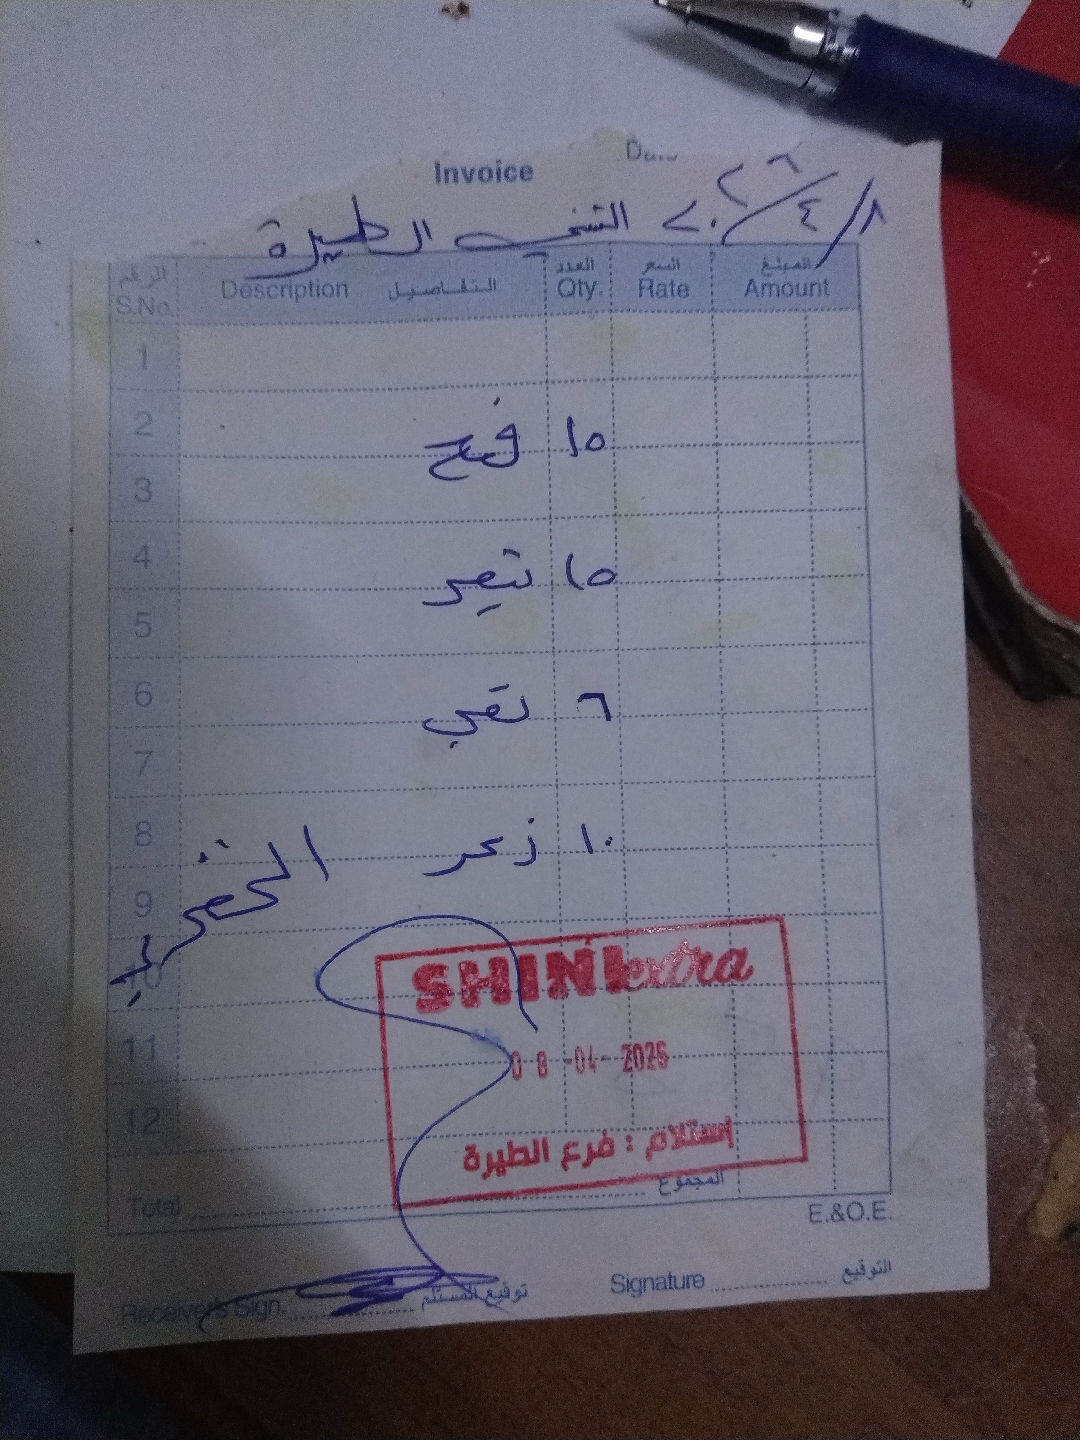 Invoice
٢٠٢٦/٤/٨
الطيرة
الرقم التفاصيل العدد السعر المبلغ
S.No. Description Qty. Rate Amount
1
2
١٥ قمح
3
4
١٥ شعير
5
6
٦
7
8
١٠
9
10
SHINE extra
11
08-04-2026
12
إستلام : فرع الطيرة
Total المجموع
E.&O.E.
Receiver's Sign. توقيع المستلم Signature التوقيع